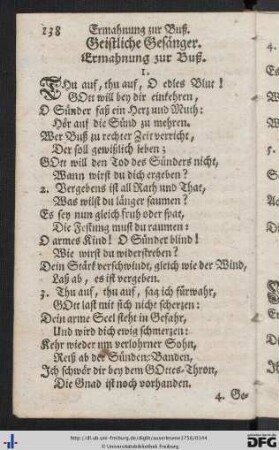 138 Ermahnung zur Buß.
Geistliche Gesänger.
Ermahnung zur Buß.
1.
THu auf, thu auf, O edles Blut!
GOtt will bey dir einkehren,
O Sünder faß ein Herz und Muth:
Hör auf die Sünd zu mehren.
Wer Buß zu rechter Zeit verricht,
Der soll gewißlich leben;
GOtt will den Tod des Sünders nicht,
Wann wirst du dich ergeben?
2. Vergebens ist all Rath und That,
Was wilst du länger saumen?
Es sey nun gleich fruh oder spat,
Die Festung must du raumen:
O armes Kind! O Sünder blind!
Wie wirst du widerstreben?
Dein Stärk verschwindt, gleich wie der Wind,
Laß ab, es ist vergeben.
3. Thu auf, thu auf, sag ich fürwahr,
GOtt last mit sich nicht scherzen:
Dein arme Seel steht in Gefahr,
Und wird dich ewig schmerzen:
Kehr wieder um verlohrner Sohn,
Reiß ab der Sünden-Banden,
Ich schwör dir bey dem GOttes-Thron,
Die Gnad ist noch vorhanden.
4. Ge-
http://dl.ub.uni-freiburg.de/diglit/auserlesene1756/0144
© Universitätsbibliothek Freiburg
gefördert durch die
DFG